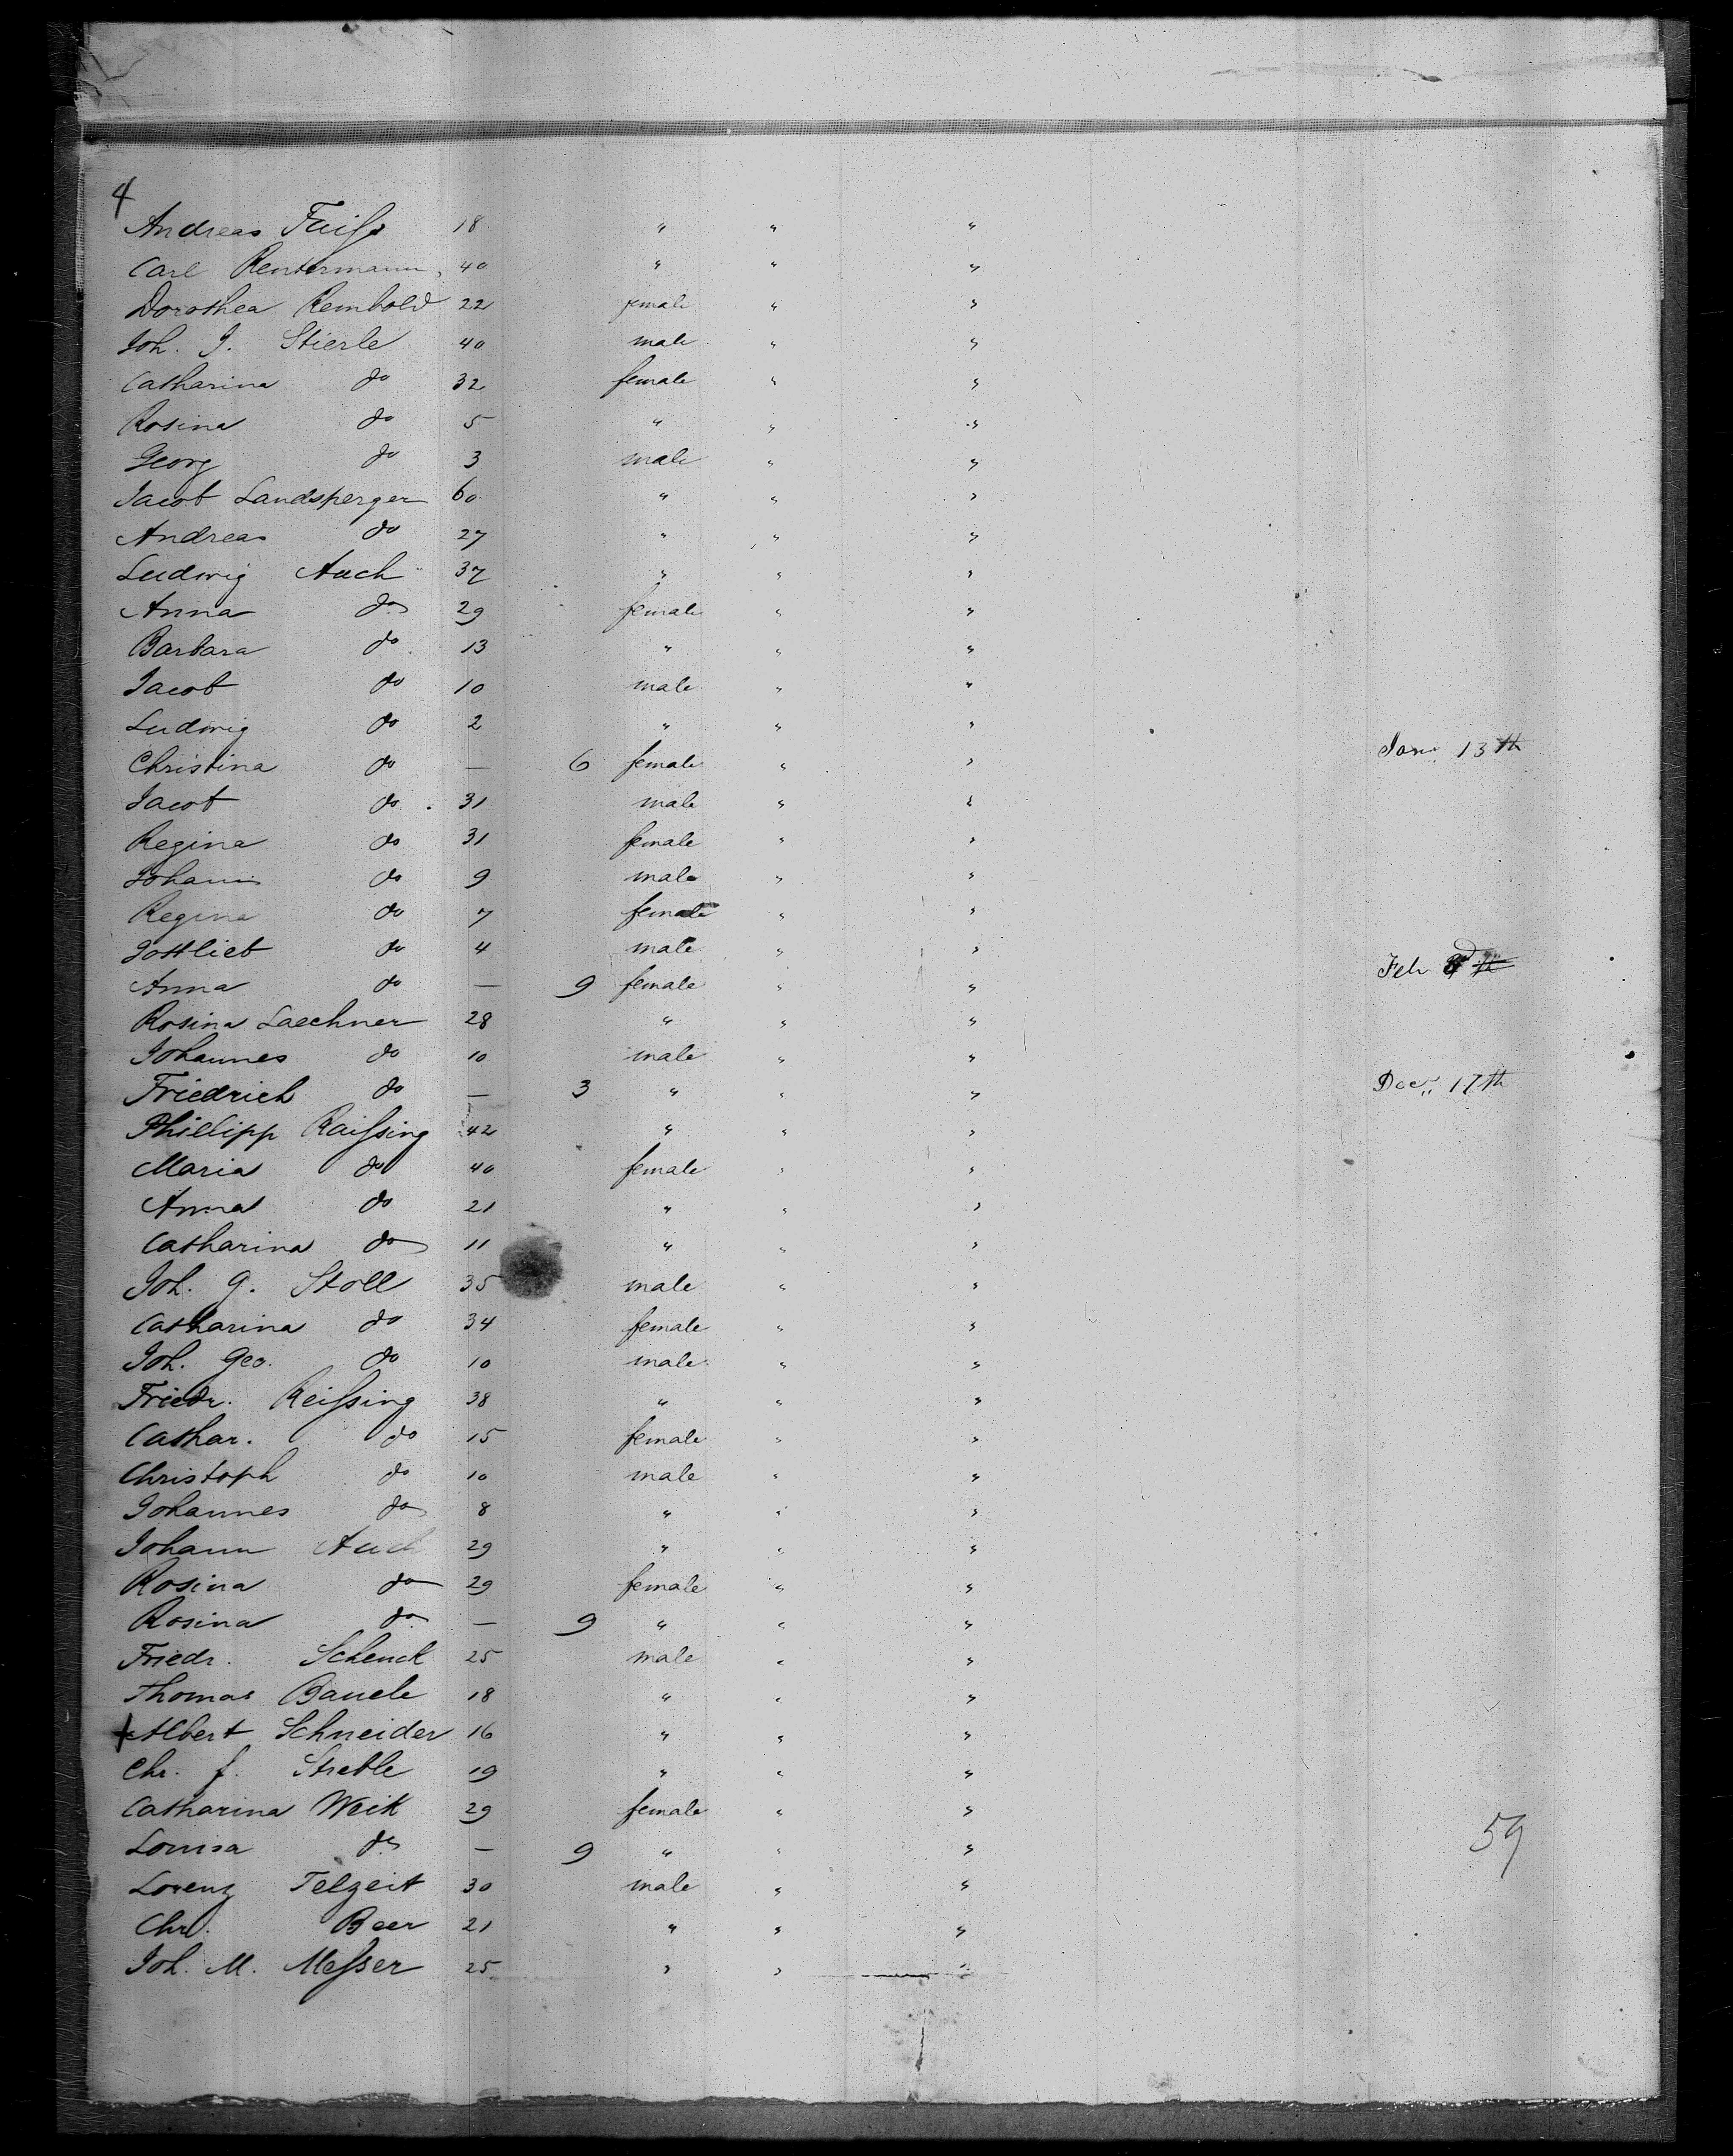 4
Andreas Faiſs 18 " " "
Carl Rentermann 40 " " "
Dorothea Rembold 22 female " "
Joh. J. Stierle 40 male " "
Catharina do 32 female " "
Rosina do 5 " " "
Georg do 3 male " "
Jacob Landsperger 60 " " "
Andreas do 27 " " "
Ludwig Auch 37 " " "
Anna do 29 female " "
Barbara do 13 " " "
Jacob do 10 male " "
Ludwig do 2 " " "
Christina do — 6 female " " Jan. 13th
Jacob do 31 male " "
Regina do 31 female " "
Johann do 9 male " "
Regina do 7 female " "
Gottlieb do 4 male " "
Anna do — 9 female " " Feb
Rosina Laechner 28 " " "
Johannes do 10 male " "
Friedrich do — 3 " " " Dec. 17th
Phillipp Raiſsing 42 " " "
Maria do 40 female " "
Anna do 21 " " "
Catharina do 11 " " "
Joh. G. Stoll 35 male " "
Catharina do 34 female " "
Joh. Geo. do 10 male " "
Friedr. Reiſsing 38 " " "
Cathar. do 15 female " "
Christoph do 10 male " "
Johannes do 8 " " "
Johann Auch 29 " " "
Rosina do 29 female " "
Rosina do — 9 " " "
Friedr. Schenck 25 male " "
Thomas Bauele 18 " " "
Albert Schneider 16 " " "
Chr. f. Streble 19 " " "
Catharina Weik 29 female " "
Louisa do — 9 " " " 59
Lorenz Telzeit 30 male " "
Chr. Beer 21 " " "
Joh. M. Meſser 25 " " "